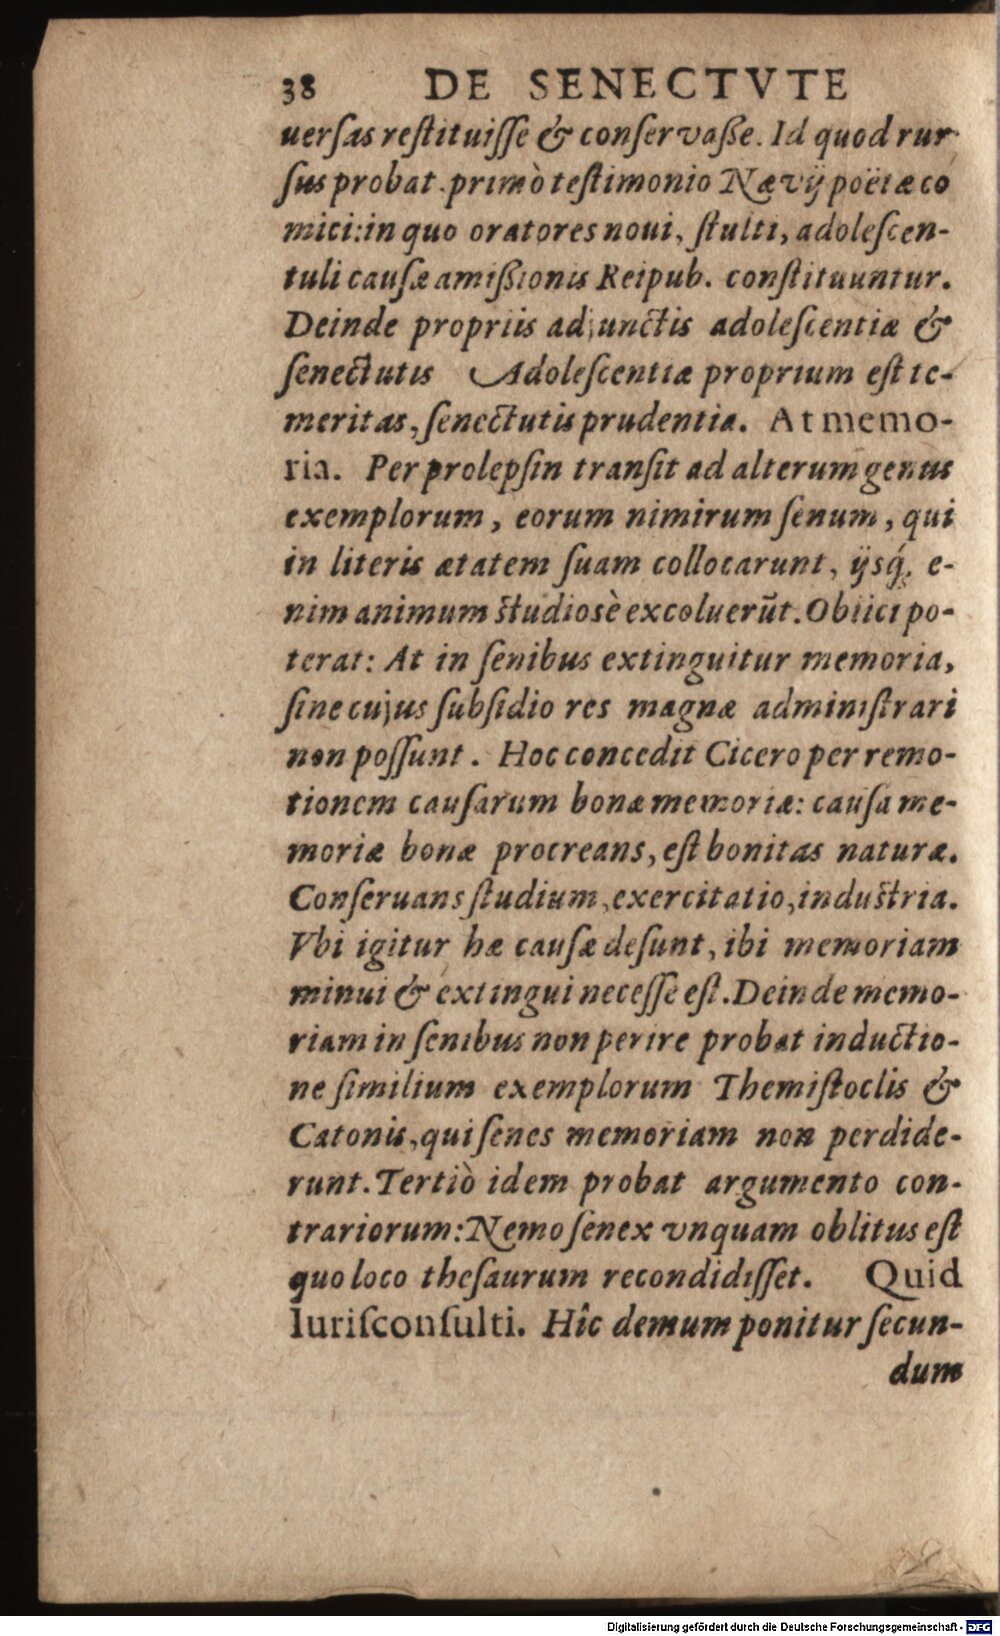 38 DE SENECTVTE
uerſas reſtituiſſe & conſervaße. Id quod rur
ſus probat primò teſtimonio Nævij poëtæ co
mici: in quo oratores noui, ſtulti, adoleſcen-
tuli cauſæ amißionis Reipub. conſtituuntur.
Deinde propriis adjunctis adoleſcentiæ &
ſenectutis Adoleſcentiæ proprium eſt te-
meritas, ſenectutis prudentia. At memo-
ria. Per prolepſin tranſit ad alterum genus
exemplorum, eorum nimirum ſenum, qui
in literis ætatem ſuam collocarunt, ijsq́; e-
nim animum studiosè excoluerũt. Obiici po-
terat: At in ſenibus extinguitur memoria,
ſine cujus ſubſidio res magnæ adminiſtrari
non poſſunt. Hoc concedit Cicero per remo-
tionem cauſarum bonæ memoriæ: cauſa me-
moriæ bonæ procreans, eſt bonitas naturæ.
Conſeruans ſtudium, exercitatio, industria.
Vbi igitur hæ cauſæ deſunt, ibi memoriam
minui & extingui neceſſe eſt. Deinde memo-
riam in ſenibus non perire probat inductio-
ne ſimilium exemplorum Themiſtoclis &
Catonis, qui ſenes memoriam non perdide-
runt. Tertiò idem probat argumento con-
trariorum: Nemo ſenex vnquam oblitus eſt
quo loco theſaurum recondidiſſet. Quid
Iuriſconſulti. Hîc demum ponitur ſecun-
dum
Digitalisierung gefördert durch die Deutsche Forschungsgemeinschaft - DFG